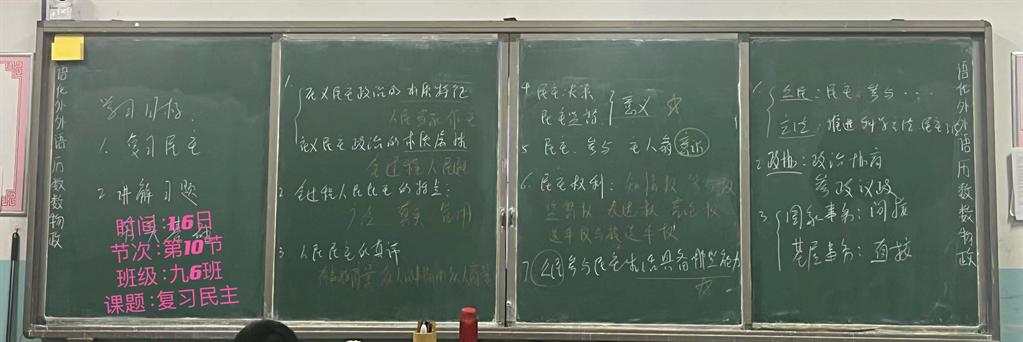 语化外外语历数数物政
学习目标:
1. 复习民主
2. 讲解习题
时间:16日
节次:第10节
班级:九6班
课题:复习民主
1. 社会主义民主政治的本质特征
人民当家作主
社会主义民主政治的本质属性
全过程人民民主
2. 全过程人民民主的特点:
广泛 真实 管用
3. 人民民主的真谛
4 民主决策
民主监督
意义 ☆
5 民主参与 主人翁意识
6. 民主权利: 知情权 参与权
监督权 表达权 言论权
选举权与被选举权
7. 公民参与民主生活具备哪些能力
☆
1. 公民: 民主参与...
立法: 推进科学立法 民主立法
2 政协: 政治协商
参政议政
3 国家事务: 间接
基层事务: 直接
语化外外语历数数物政